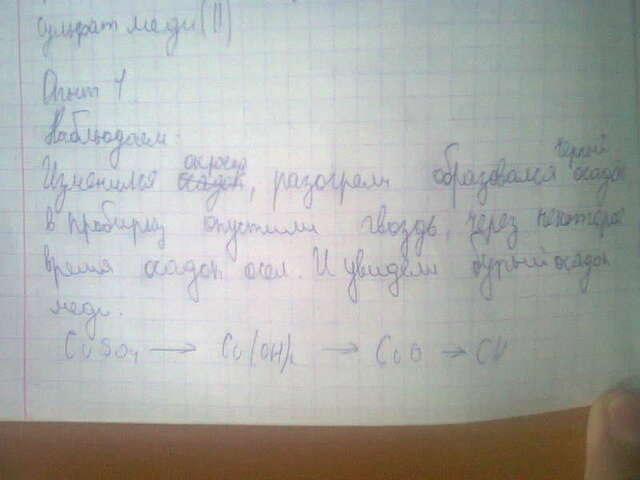 Сульфат меди (II)
Опыт 1.
Наблюдаем.
Изменился окрас, разогрели образовался черный осадок
в пробирку опустили гвоздь, через некоторое
время осадок осел. И увидели бурый осадок
меди.
CuSO4 → Cu(OH)2 → CuO → Cu